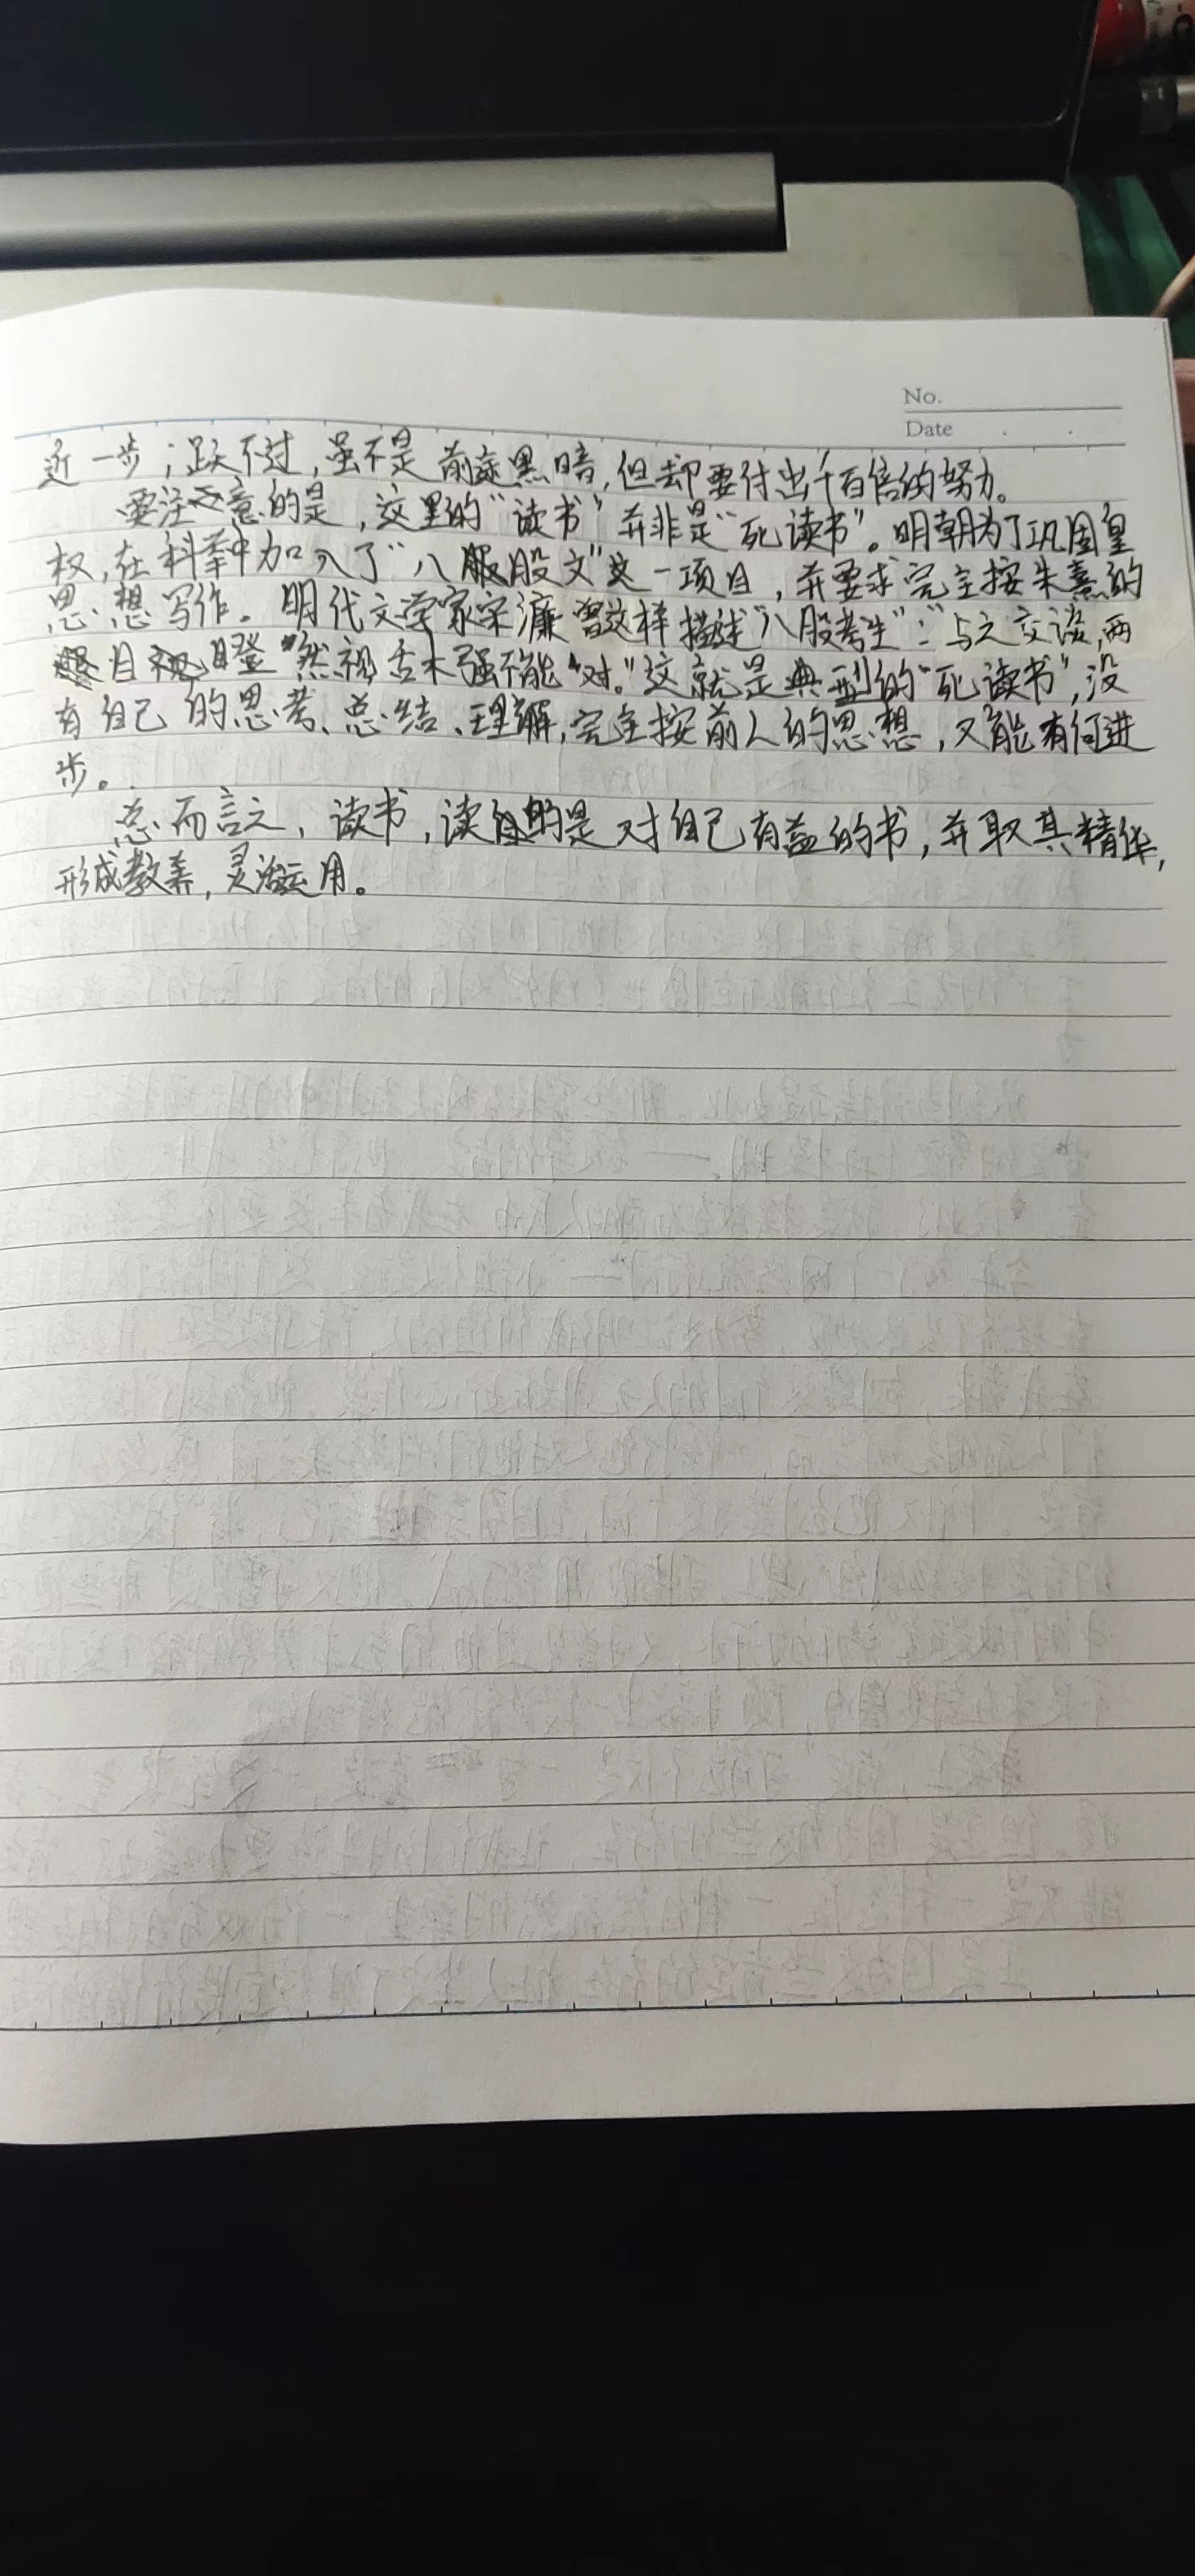 No.
Date
近一步；跃不过，虽不是前途黑暗，但却要付出千百倍的努力。
要注意的是，这里的“读书”并非是“死读书”。明朝为了巩固皇
权，在科举中加入了“八股文”这一项目，并要求完全按朱熹的
思想写作。明代文学家宋濂曾这样描述“八股考生”：“与之交谈，两
目瞪然视，舌木强不能对。”这就是典型的“死读书”，没
有自己的思考、总结、理解，完全按前人的思想，又能有何进
步。
总而言之，读书，读的是对自己有益的书，并取其精华，
形成教养，灵活运用。